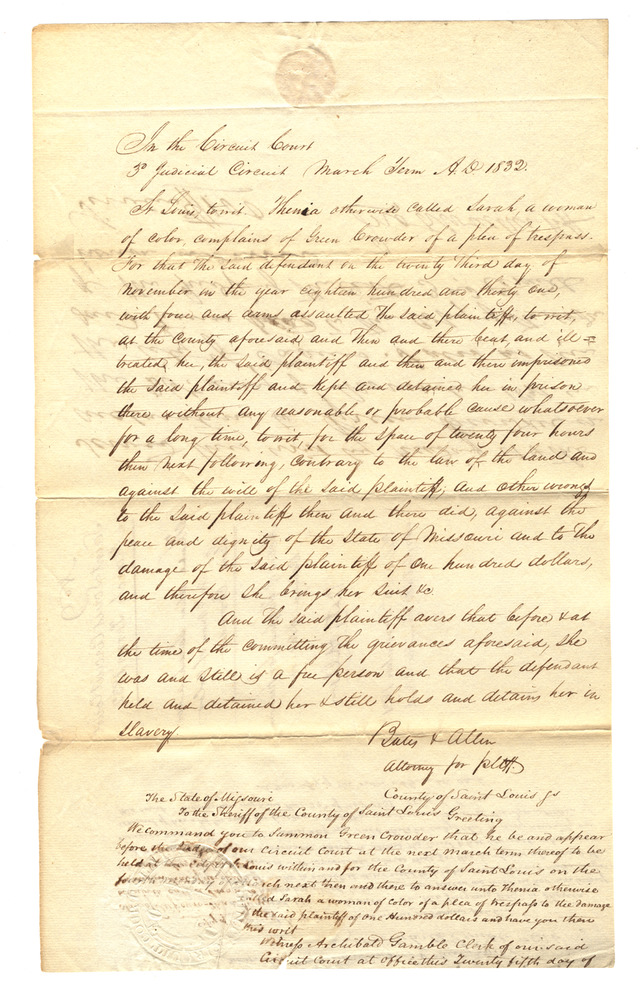 In the Circuit Court
3d Judicial Circuit March Term A.D 1832.
St Louis towit. Thenia otherwise called Sarah, a woman
of color, complains of Green Crowder of a plea of trespass.
For that the said defendant on the twenty third day of
november in the year eighteen hundred and thirty one,
with force and arms assaulted the said plaintiff, towit,
at the County aforesaid and then and there beat, and ill=
treated her, the said plaintiff and then and there imprisoned
the said plaintiff and kept and detained her in prison
there without any reasonable or probable cause whatsoever
for a long time, towit, for the space of twenty four hours
then next following, contrary to the law of the land and
against the will of the said plaintiff; and other wrongs
to the said plaintiff then and there did, against the
peace and dignity of the State of Missouri and to the
damage of the said plaintiff of one hundred dollars,
and therefore she brings her suit &c
And the said plaintiff avers that before & at
the time of the committing the grievances aforesaid, she
was and still is a free person and that the defendant
held and detained her & still holds and detains her in
slavery.
Bates & Allen
Attorney for pltff.
The State of Missouri County of Saint Louis Js
To the Sheriff of the County of Saint Louis Greeting
We command you to Summon Green Crowder that he be and appear
before the Judge of our Circuit Court at the next march term thereof to be
held at the City of St Louis within and for the County of Saint Louis on the
fourth monday of March next then and there to answer unto Thenia otherwise
called Sarah a woman of Color of a plea of trespass to the damage
of the said plaintiff of one Hundred dollars and have you then there
this writ
Witness Archibald Gamble Clerk of our said
Circuit Court at office this Twenty fifth day of